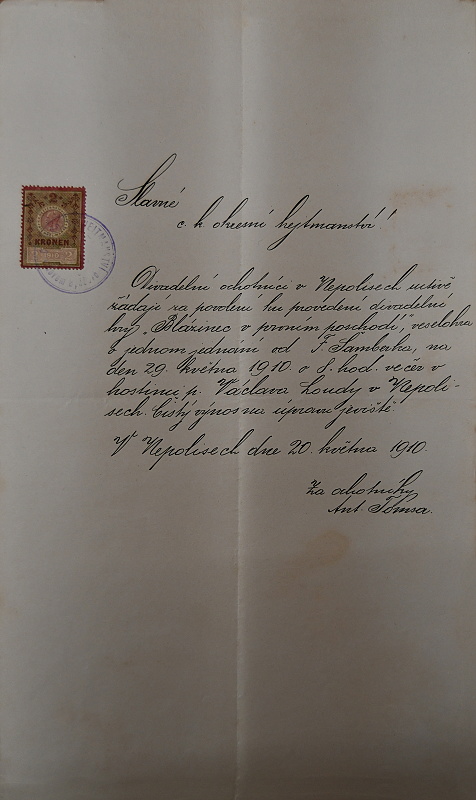 Slavné
c. k. okresní hejtmanství!
2
KRONEN
1910
Divadelní ochotníci v Nepolisech uctivě
žádají za povolení ku provedení divadelní
hry „Blázinec v prvním poschodí", veselohra
o jednom jednání od F. Šamberka, na
den 29. května 1910 o 8. hod. večer v
hostinci p. Václava Loudy v Nepoli-
sech. Čistý výnos na úpravu jeviště.
V Nepolisech dne 20. května 1910.
Za ochotníky
Ant. Tomsa.